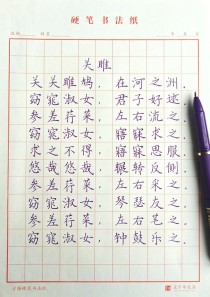 硬笔书法纸
关雎
关关雎鸠,在河之洲.
窈窕淑女,君子好逑
参差荇菜,左右流之
窈窕淑女,寤寐求之
求之不得,寤寐思服
悠哉悠哉,辗转反侧
参差荇菜,左右采之
窈窕淑女,琴瑟友之
参差荇菜,左右芼之
窈窕淑女,钟鼓乐之.